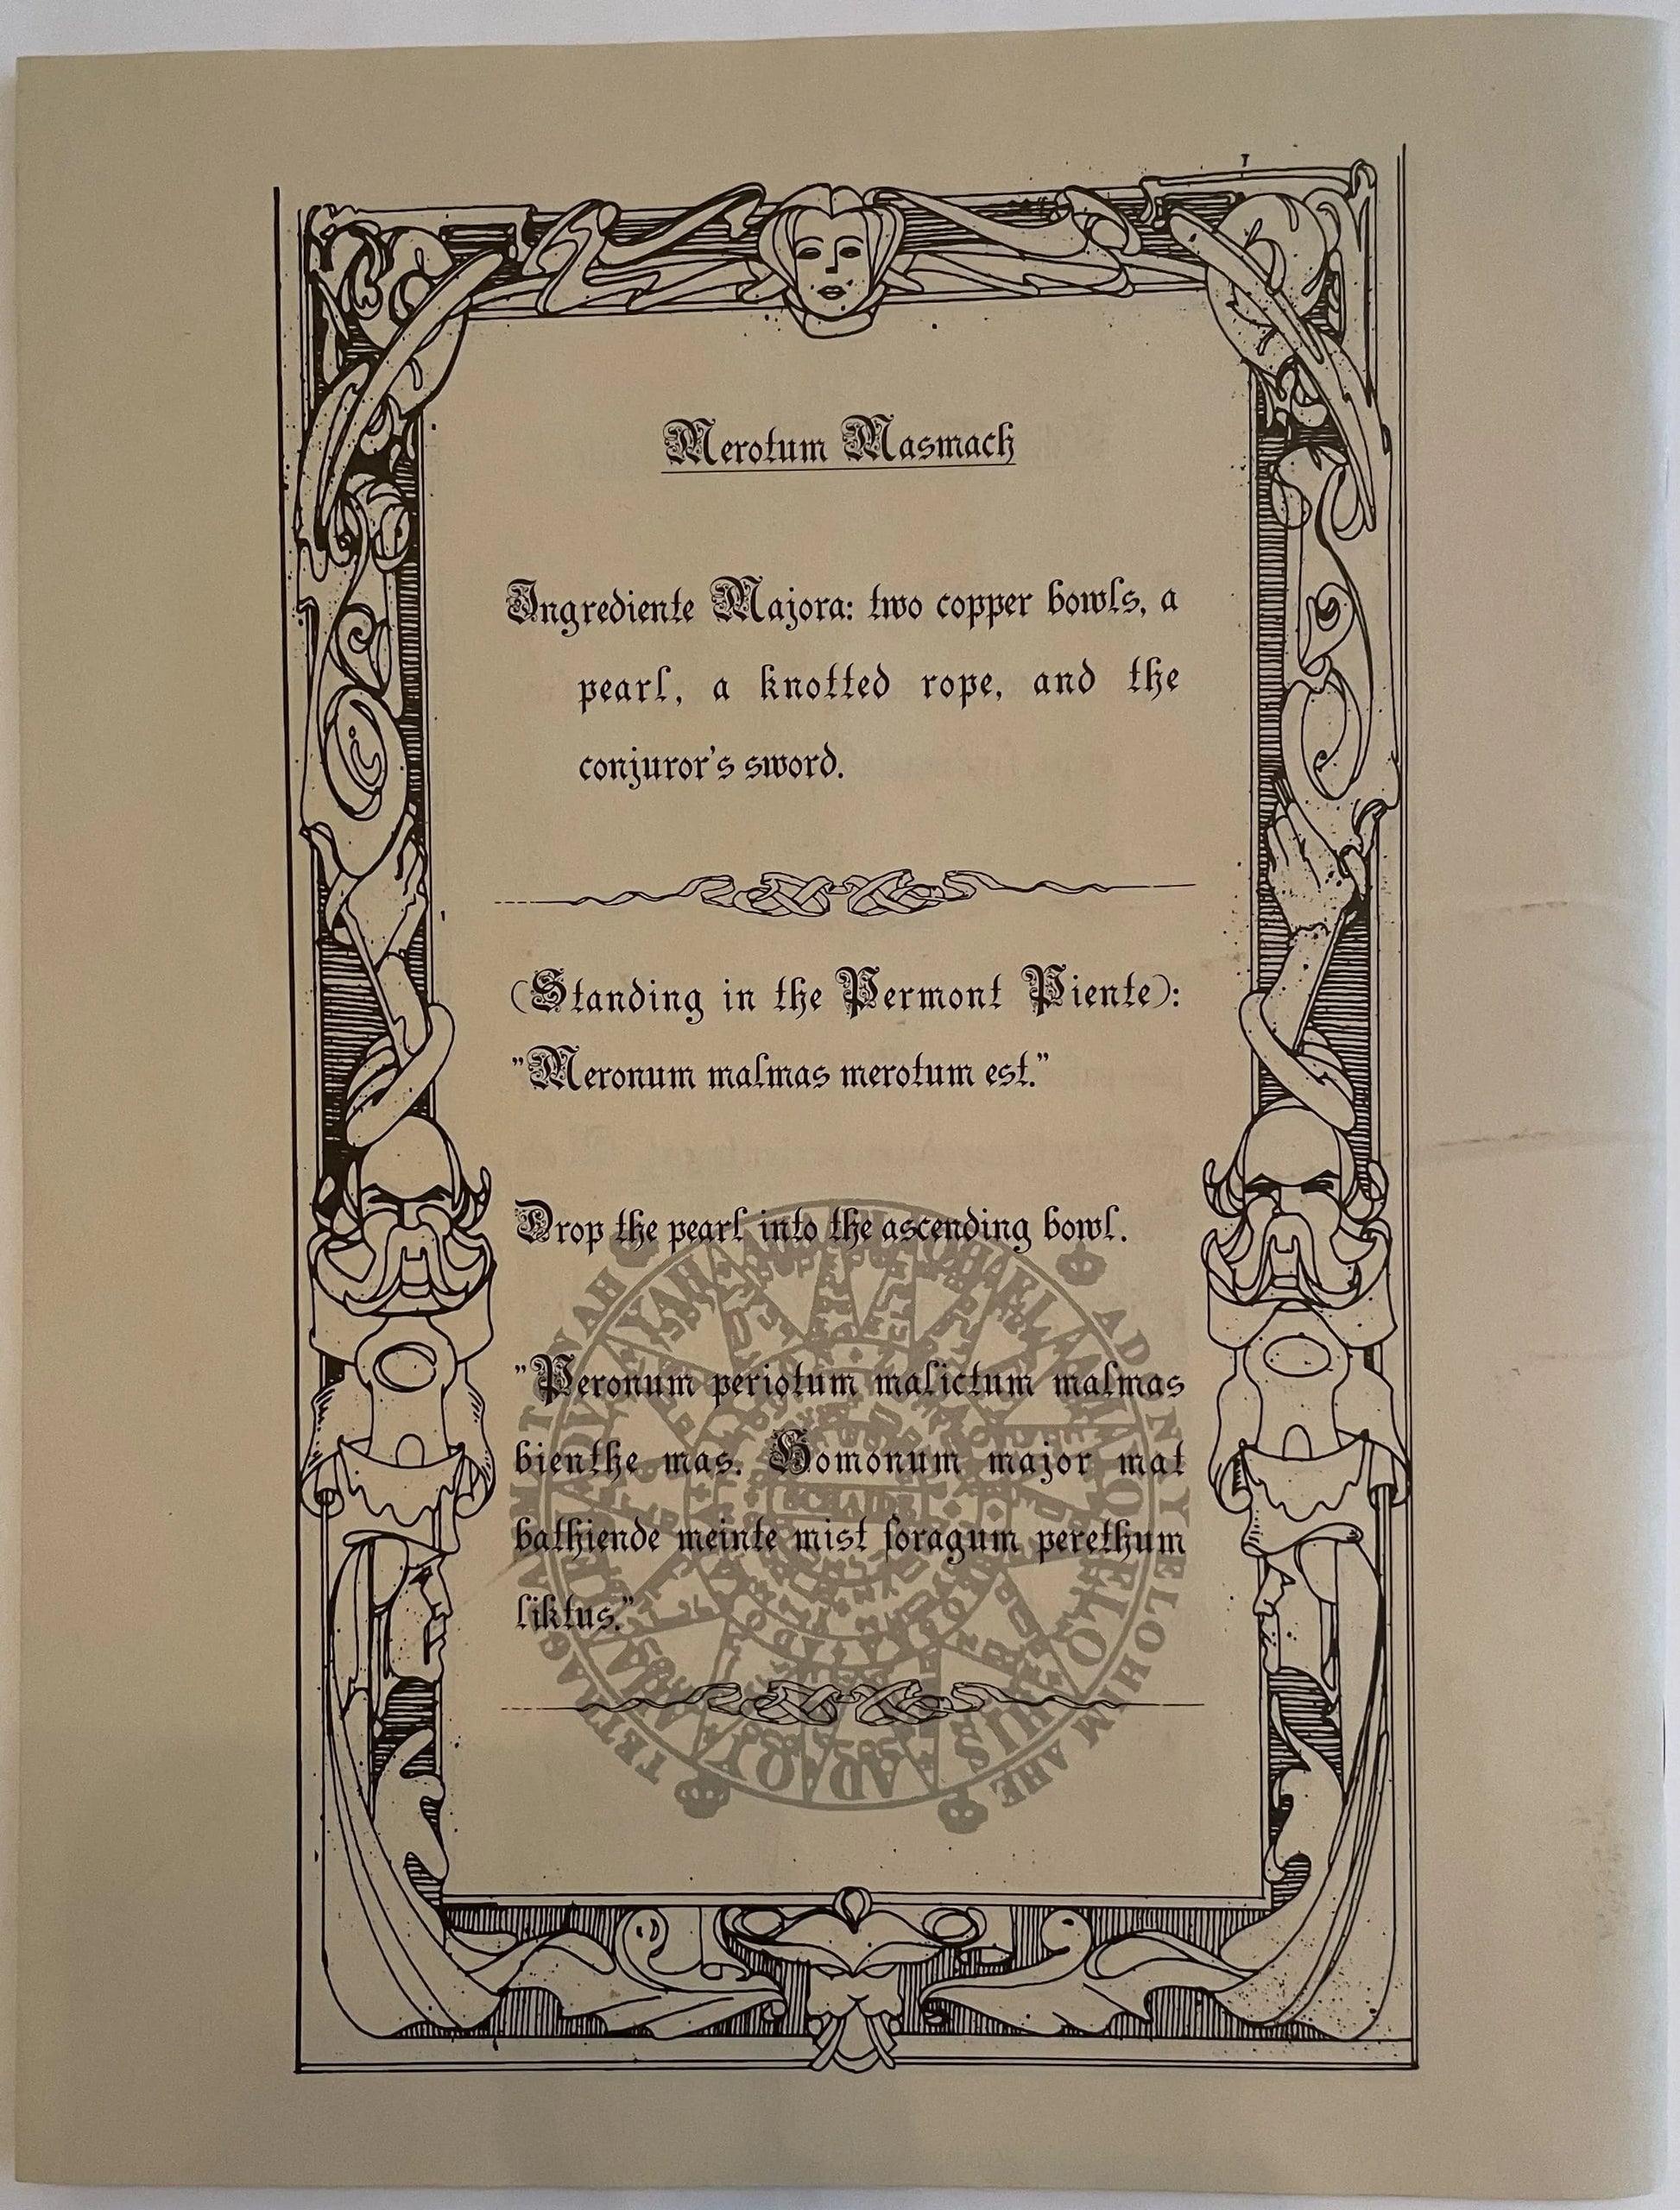 Merotum Masmach
Ingrediente Majora: two copper bowls, a
pearl, a knotted rope, and the
conjuror's sword.
(Standing in the Permont Piente):
"Meronum malmas merotum est."
Drop the pearl into the ascending bowl.
"Peronum periotum malictum malmas
bienthe mas. Homonum major mat
bathiende meinte mist foragum perethum
liktus."
ADONAY ELOHIM